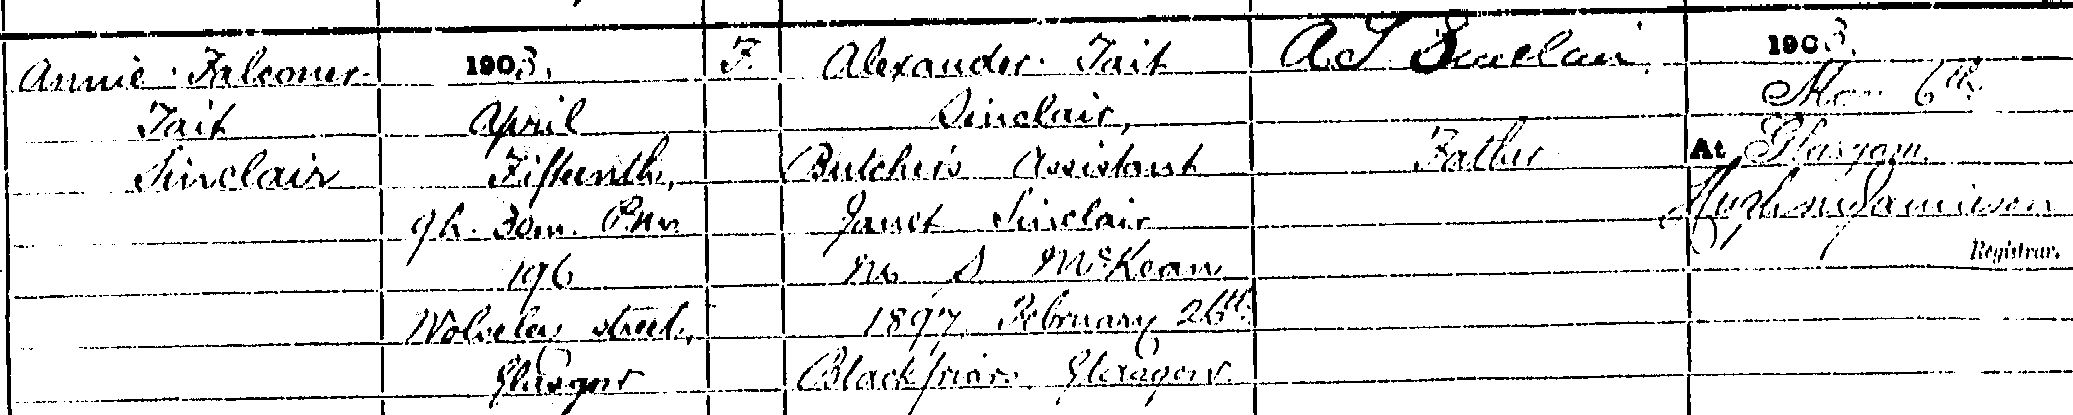 Annie Falconer
Tait
Sinclair
1903.
April
Fifteenth,
9h. 30m. P.M.
196
Wolseley Street,
Glasgow
F.
Alexander Tait
Sinclair,
Butcher's Assistant
Janet Sinclair
M. S. McKean
1897, February 26th
Blackfriars Glasgow
A T Sinclair
Father
1903.
May 6th
At Glasgow
Hugh Jamieson
Registrar.